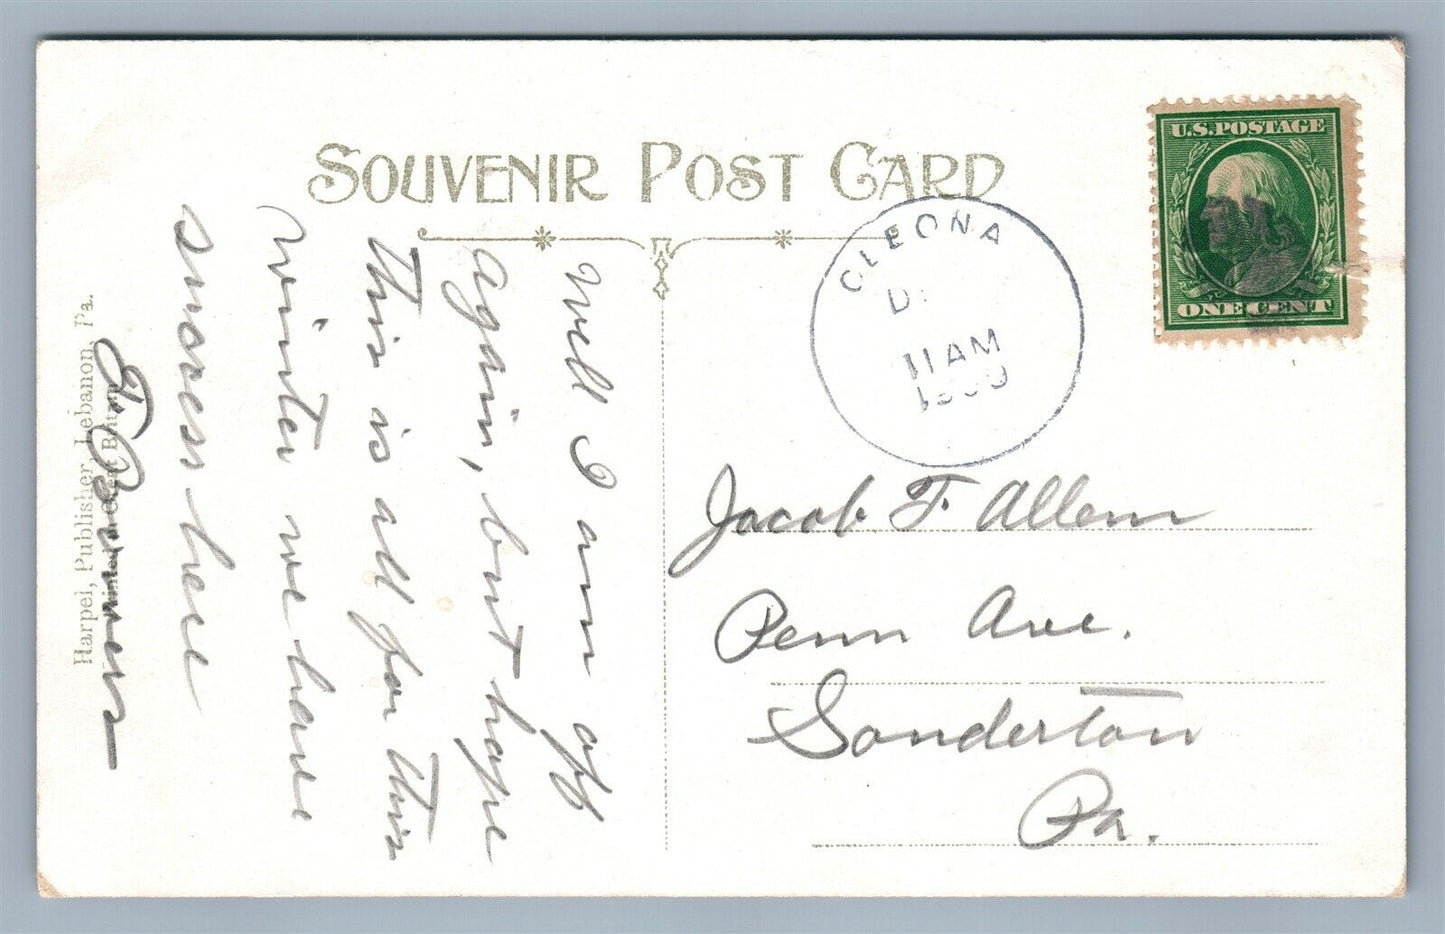 SOUVENIR POST CARD
U.S.POSTAGE
ONE CENT
CLEONA
D
11 AM
1909
Well I am off
again, but hope
this is all for this
winter we have
snow here
Harpel, Publisher, Lebanon, Pa.
Jacob F. Allem
Penn Ave.
Sonderton
Pa.